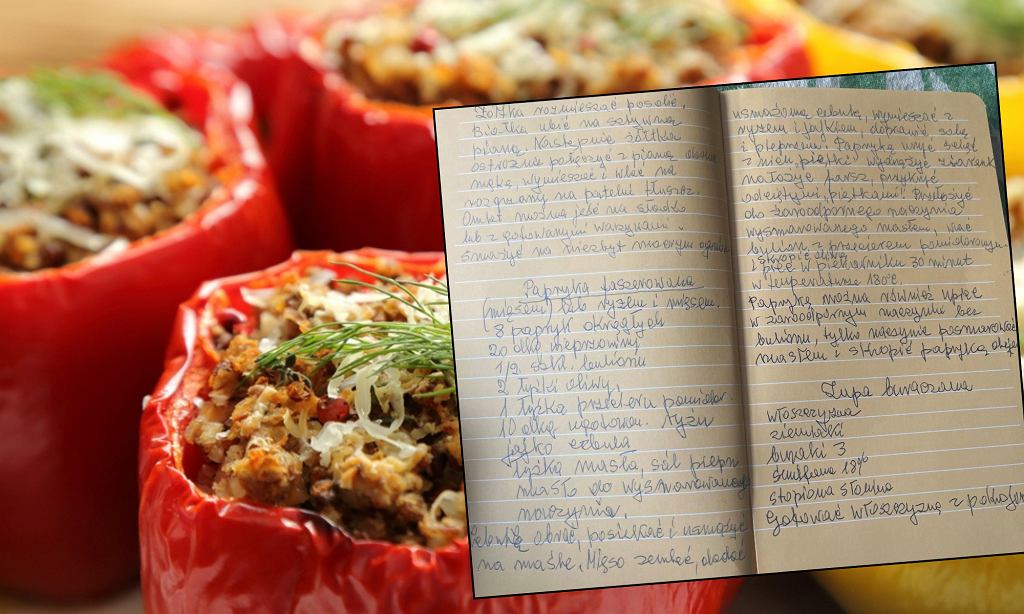 Żółtka rozmieszać posolić,
Białka ubić na sztywną
pianę. Następnie żółtka
ostrożnie połączyć z pianą
mąkę, wymieszać i wlać na
rozgrzany na patelni tłuszcz.
Omlet można jeść na słodko
lub z gotowanymi warzywami.
Smażyć na niezbyt mocnym ogniu
Papryka faszerowana
(mięsem) lub ryżem i mięsem.
8 papryk okrągłych
20 dkg wieprzowiny
1/2 szkl. bulionu
2 łyżki oliwy,
1 łyżka przecieru pomidor.
10 dkg ugotowan. ryżu
jajko cebula
łyżka masła, sól pieprz
masło do wysmarowania
naczynia.
Cebulkę obrać, posiekać i usmażyć
na maśle. Mięso zemleć, dodać
usmażoną cebulę, wymieszać z
ryżem i jajkiem, doprawić solą
i pieprzem. Paprykę umyć ściąć
z nich piętki wydrążyć ziarenka
nałożyć farsz, przykryć
odciętymi piętkami. Przełożyć
do żaroodpornego naczynia
wysmarowanego masłem, wlać
bulion z przecierem pomidorowym
i skropić oliwą
i piec w piekarniku 30 minut
w temperaturze 180°C.
Paprykę można również upiec
w żaroodpornym naczyniu bez
bulionu, tylko naczynie posmarować
masłem i skropić paprykę
Zupa buraczana
włoszczyzna
ziemniaki
buraki 3
śmietana 18%
stopiona słonina
Gotować włoszczyznę z